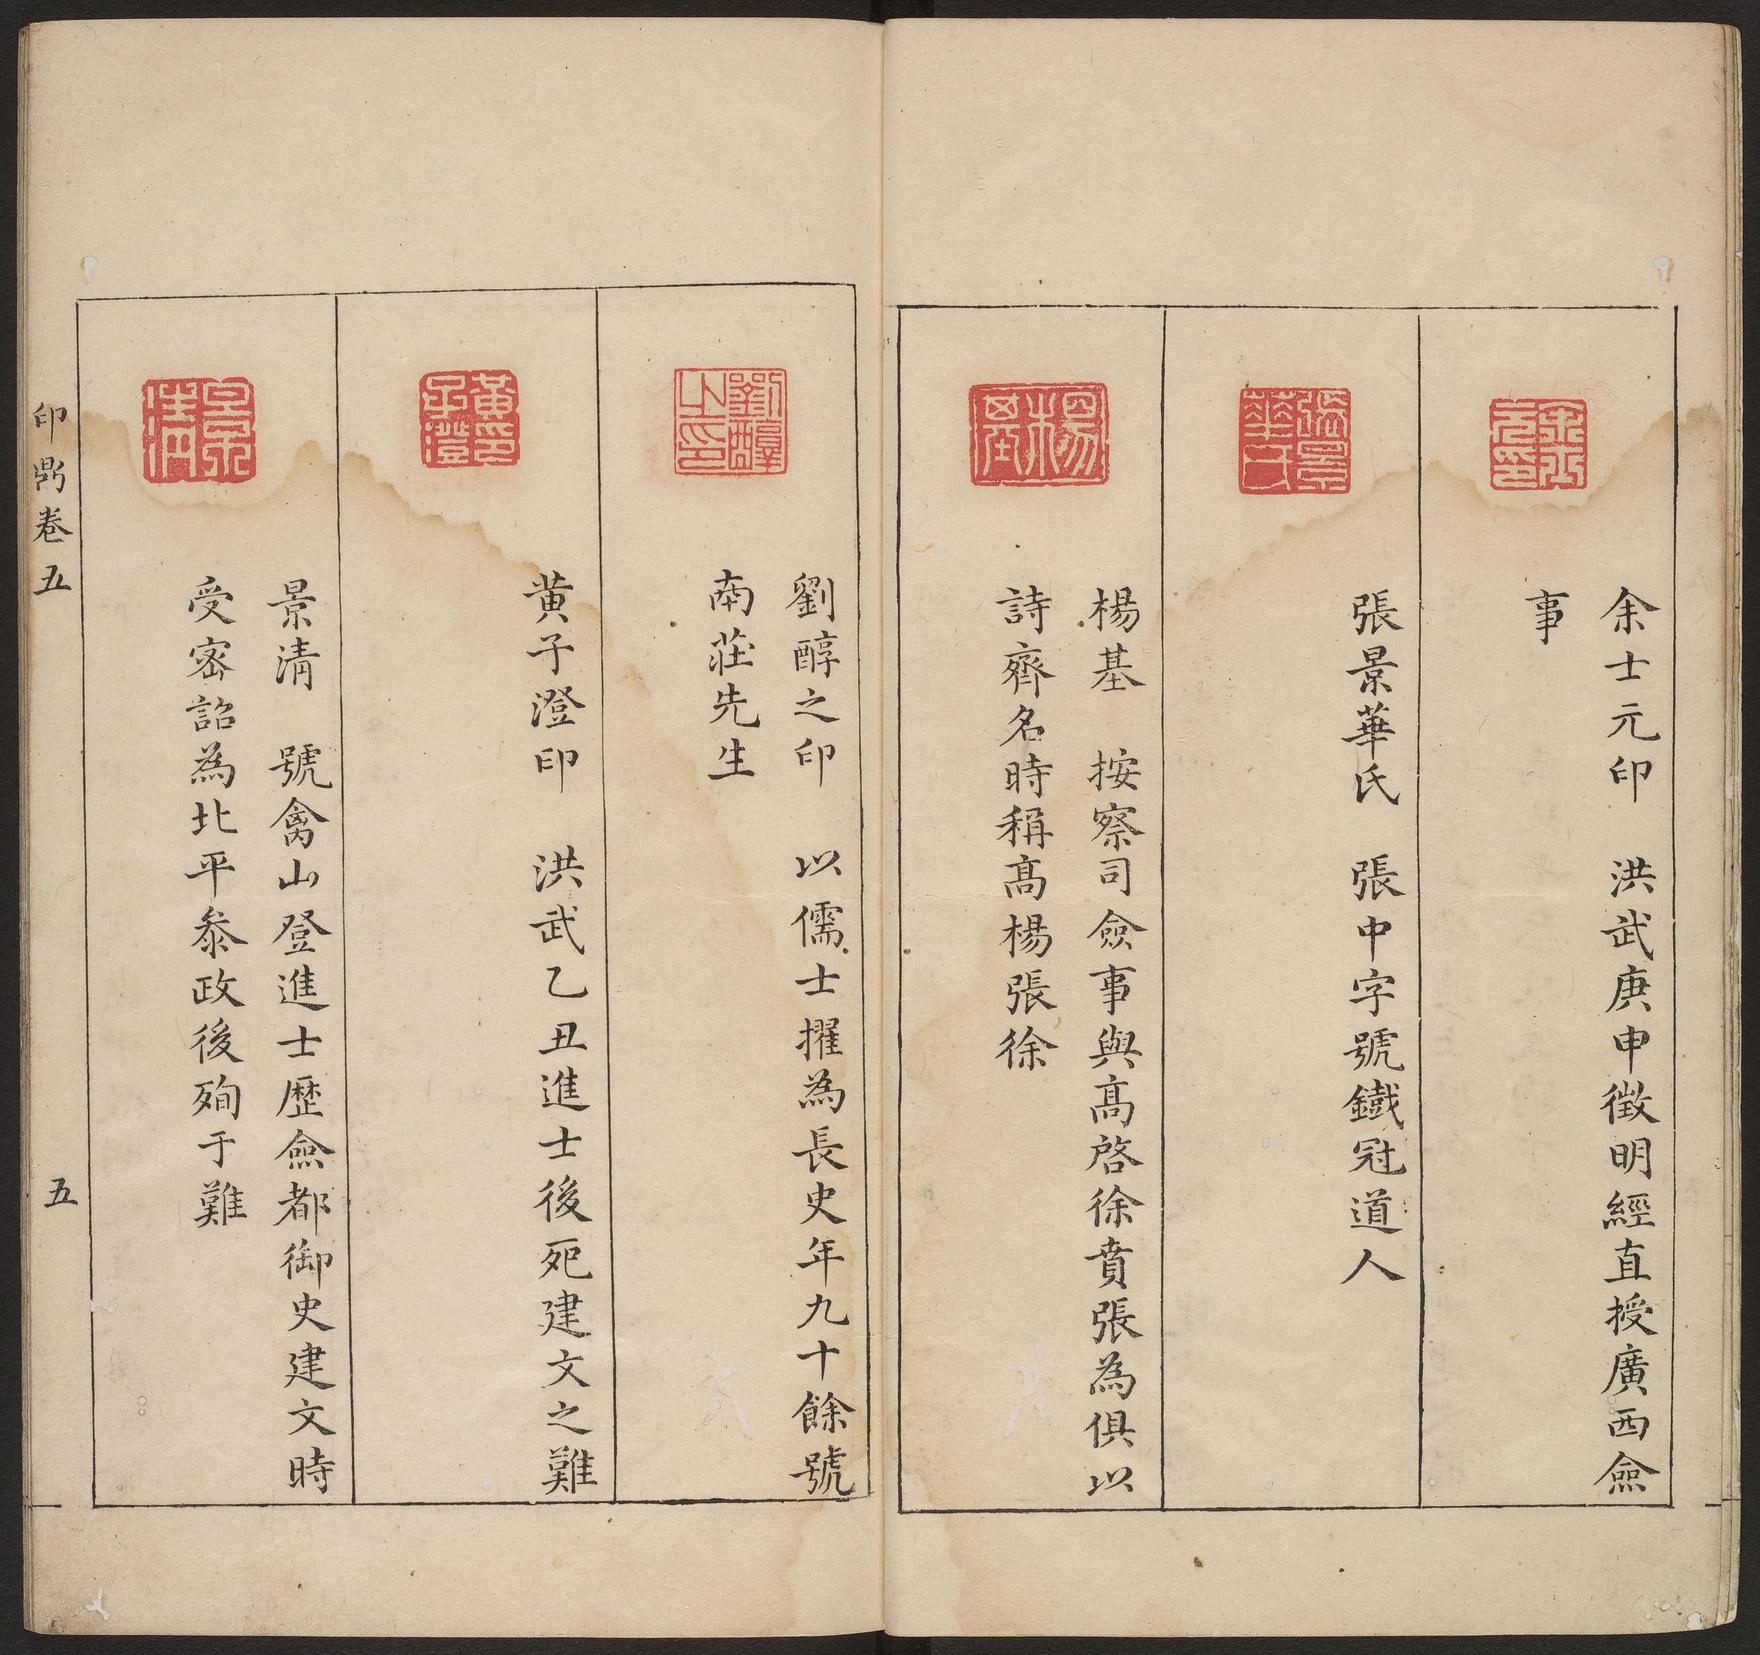 余士元印
余士元印　洪武庚申徵明經直授廣西僉
事
張景華氏
張景華氏　張中字號鐵冠道人
楊基
楊基　按察司僉事與高啓徐賁張為俱以
詩齊名時稱高楊張徐
劉醇之印
劉醇之印　以儒士擢為長史年九十餘號
南莊先生
黃子澄印
黃子澄印　洪武乙丑進士後死建文之難
景清
景清　號禽山登進士歷僉都御史建文時
受密詔為北平叅政後殉于難
印鼎卷五
五